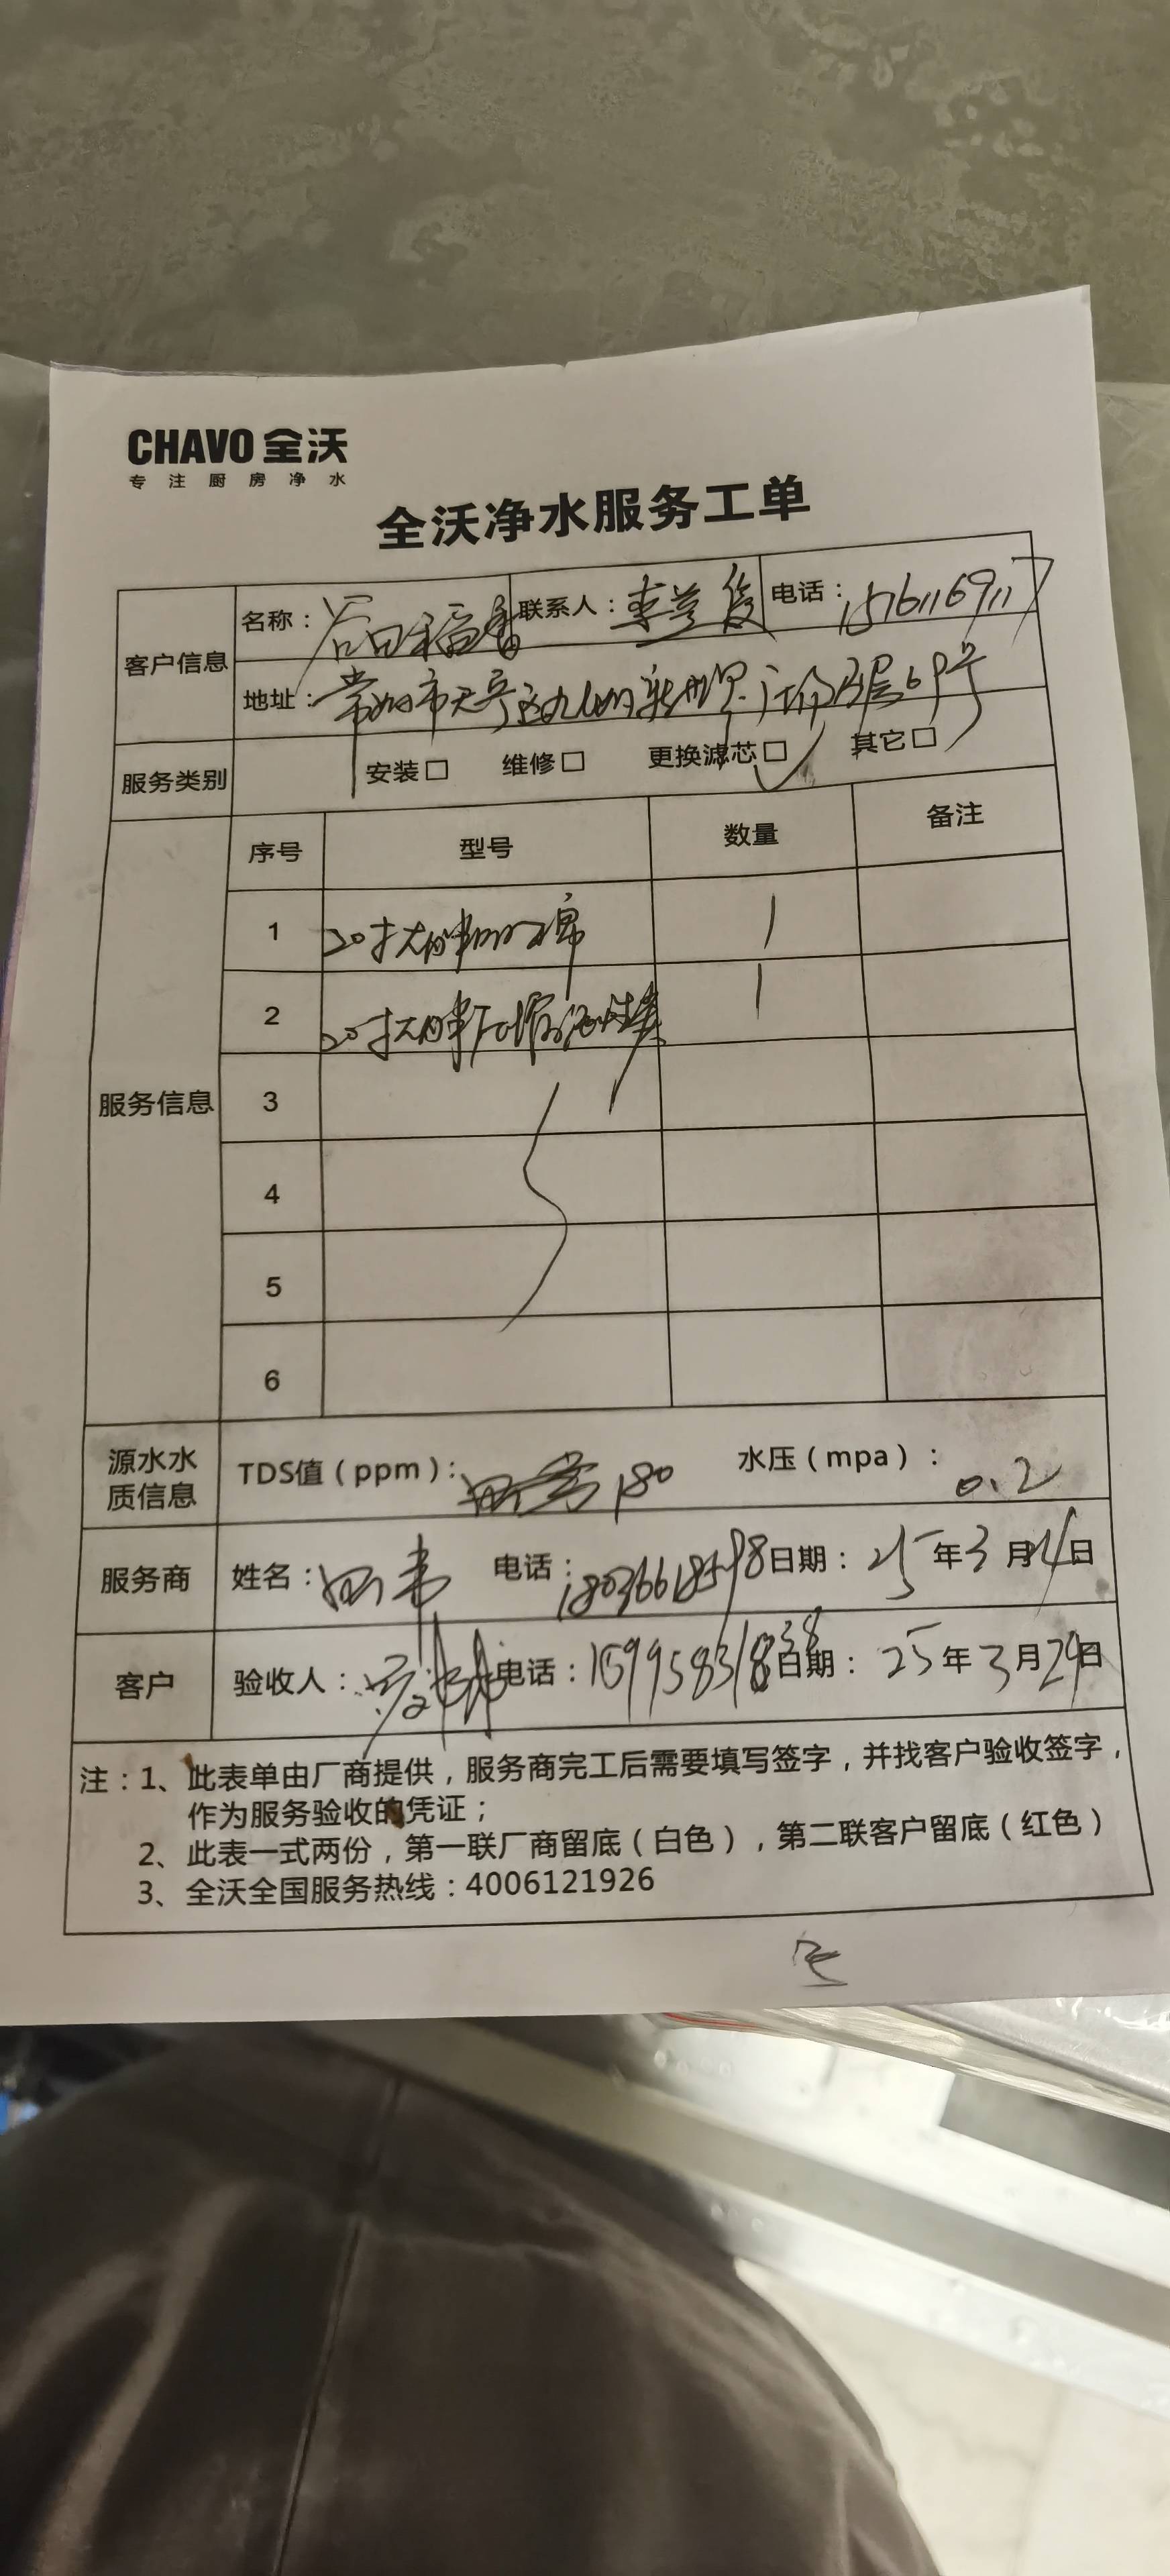 CHAVO 全沃
专注厨房净水
全沃净水服务工单
客户信息
名称：谷田稻香 联系人：李 俊 电话：15161169117
地址：常州市天宁区九洲新世界 五层69号
服务类别 安装□ 维修□ 更换滤芯□ 其它□
服务信息
序号 型号 数量 备注
1 20寸大胖PP棉 1
2 20寸大胖压缩活性炭 1
3
4
5
6
源水水质信息 TDS值（ppm）：180 水压（mpa）：0.2
服务商 姓名： 电话：18036618598 日期：25年3月 日
客户 验收人： 电话： 日期：25年3月24日
注：1、此表单由厂商提供，服务商完工后需要填写签字，并找客户验收签字，
作为服务验收的凭证；
2、此表一式两份，第一联厂商留底（白色），第二联客户留底（红色）
3、全沃全国服务热线：4006121926